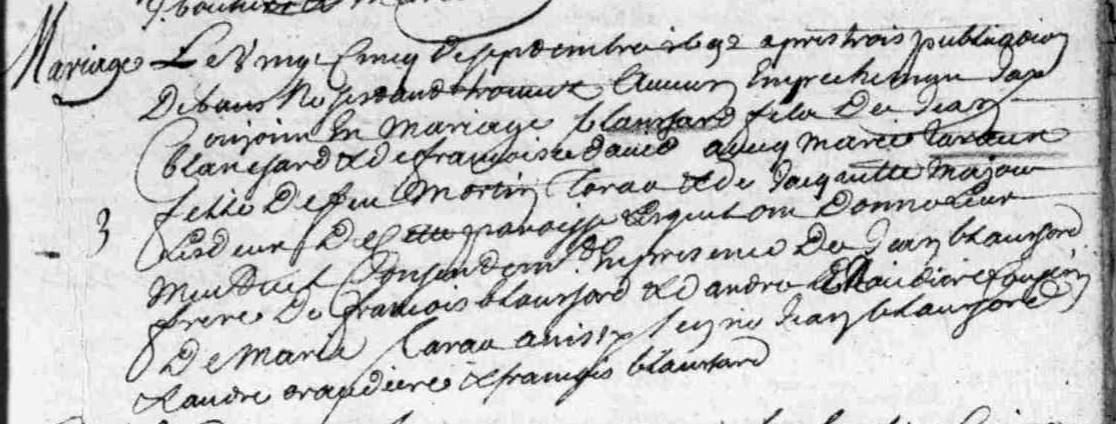 Mariage Le Vingt Cinq de septembre 1692 apres trois publication
De bans Ne sestant trouvez Aucun Empechement Jay
Conjoint En Mariage blanchard fils De Jean
blanchard & de francoise david avecq Marie taraux
fille De feu Martin Tarau & de Jaquette Majou
Les deux De paroisse Lesquels ont Donné Leur
Mutuel Consentem.t En presence De Jean blanchard
frere De francois blanchard & d andre cousin
De Marie Tarau Jean blanchard
& andre & francois blanchard